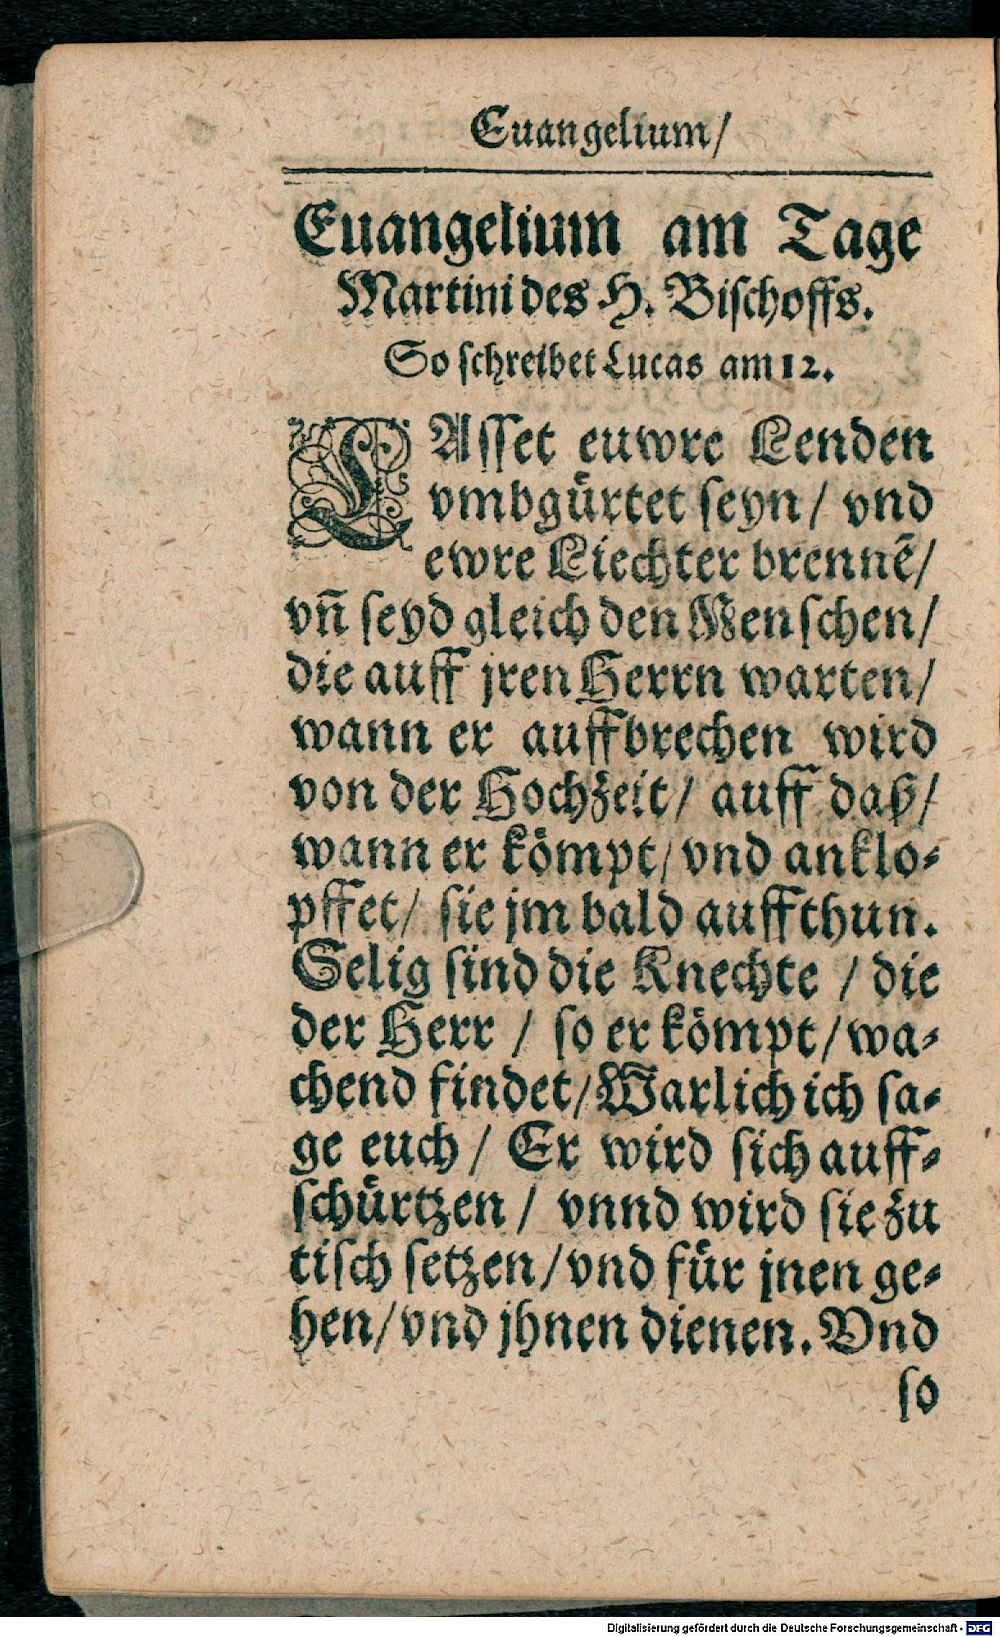 Euangelium/
Euangelium am Tage
Martini des H. Bischoffs.
So schreibet Lucas am 12.
LAsset euwre Lenden
vmbgürtet seyn/ vnd
ewre Liechter brennẽ/
vñ seyd gleich den Menschen/
die auff jren Herrn warten/
wann er auffbrechen wird
von der Hochzeit/ auff daß/
wann er kömpt/ vnd anklo-
pffet/ sie jm bald auffthun.
Selig sind die Knechte / die
der Herr / so er kömpt/ wa-
chend findet/ Warlich ich sa-
ge euch / Er wird sich auff-
schürtzen / vnnd wird sie zu
tisch setzen/ vnd für jnen ge-
hen/ vnd jhnen dienen. Vnd
so
Digitalisierung gefördert durch die Deutsche Forschungsgemeinschaft - DFG